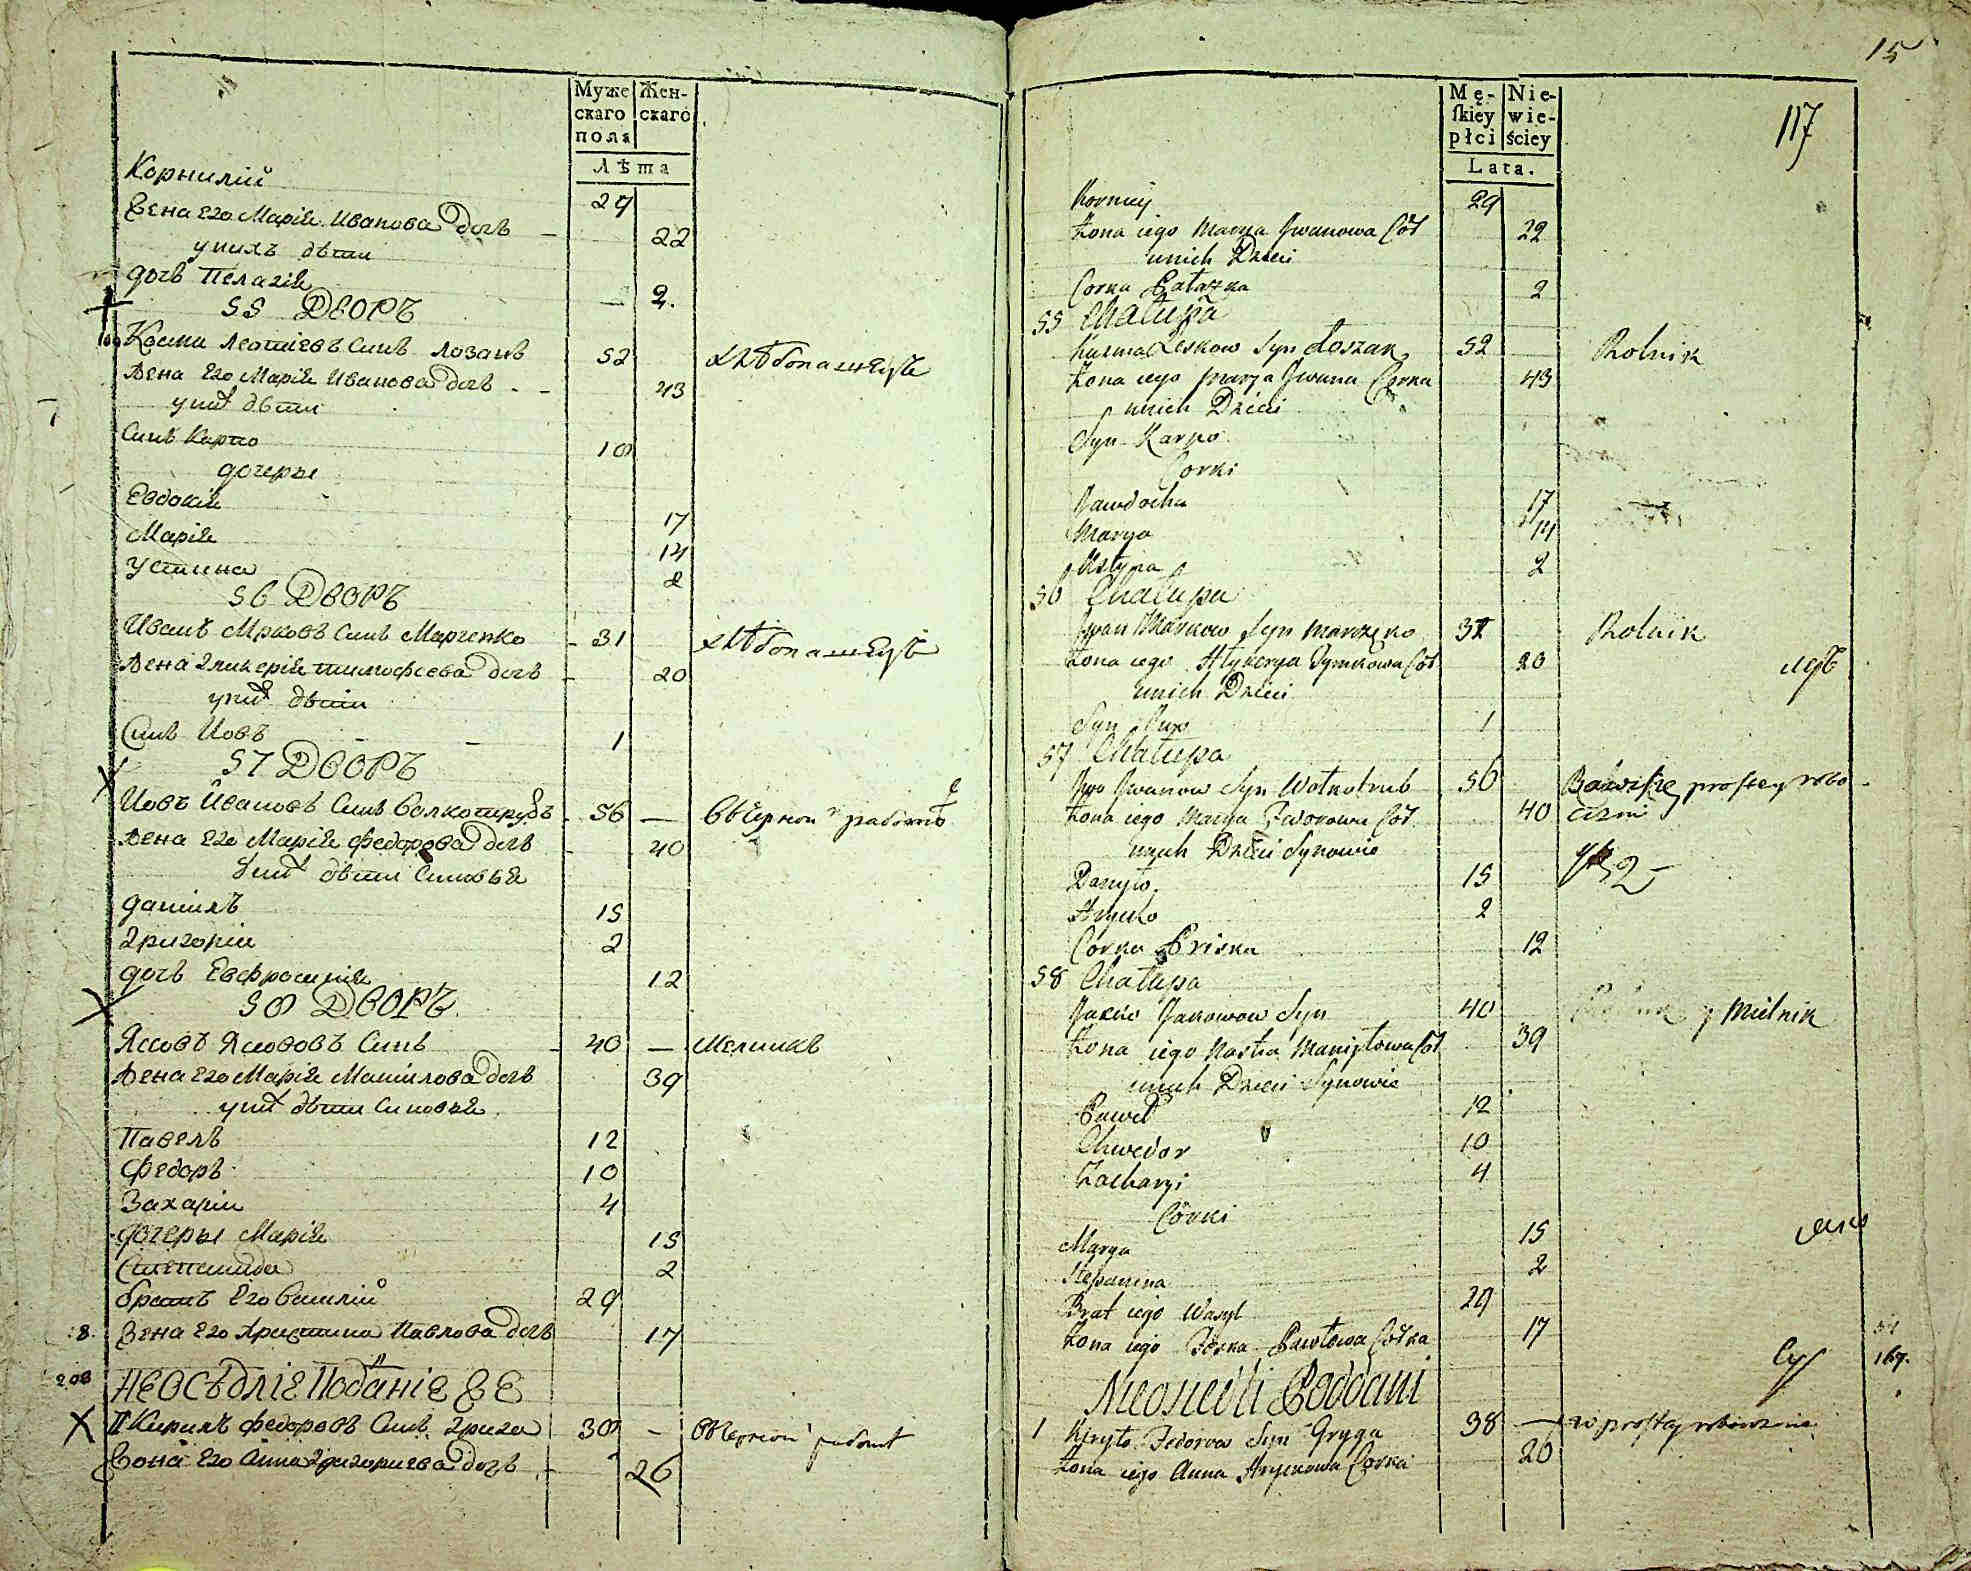 Муже
скаго
пола
Жен-
скаго
Лѣта
Корнилій 29
Жена Его Марія Иванова дочь 22
у нихъ дѣти
дочь Пелагія 2.
55 ДВОРЪ
Косма Леонтіевъ Синъ Лозанъ 52 хлѣбопашецъ
Жена Его Марія Иванова дочь 43
у нихъ дѣти
Синъ Карпо 10
дочеры
Евдокія 17
Марія 14
Устина 2
56 ДВОРЪ
Иванъ Марковъ Синъ Марченко 31 хлѣбопашецъ
Жена Гликерія тимофеева дочь 20
у нихъ дѣти
Синъ Иовъ 1
57 ДВОРЪ
Иовъ Ивановъ Синъ Волкотрубъ 56 — въ Черной работѣ
Жена Его Марія Федорова дочь 40
у нихъ дѣти Синовья
даніилъ 15
Григорій 2
дочь Евфросинія 12
58 ДВОРЪ
Яковъ Якововъ Синъ 40 — Мелникъ
Жена Его Марія Маниилова дочь 39
у нихъ дѣти Синовья
Павелъ 12
Федоръ 10
Захарій 4
дочеры Марія 15
Степанида 2
братъ Его Василій 29
:8. Жена Его Христина Павлова дочь 17
208 НЕОСѢДЛІЕ ПОДАНІЕ
Кирилъ Федоровъ Синъ Грига 38 — въ Черной работѣ
Жона Его Анна Григориева дочь 26
15
117
Mę-
skiey
płci
Nie-
wie-
ściey
Lata.
Korniey 29
Żona iego Marya Jwanowa Cór 22
unich Dzieci
Corka Pałażka 2
55 Chałupa
Kuzma Leskow Syn Łoszak 52 Rolnik
Żona iego Marya Jwana Corka 43
unich Dzieci
Syn Karpo
Corki
Jawdocha 17
Marya 14
Ustyna 2
56 Chałupa
Jwan Markow Syn Marczęko 31 Rolnik
Żona iego Hłykerya Tymkowa Cór 20
unich Dzieci
Syn Jwo 1
57 Chałupa
Jwo Jwanow Syn Wołkotrub 56 Bawi się w prostey robo-
Żona iego Marya Fedorowa Cór 40 ciznie
unich Dzieci Synowie
Danyło 15
Hrycko 2
Córka Priska 12
58 Chałupa
Jacko Jakowow Syn 40 Rolnik y Mielnik
Żona iego Nasta Maniyłowa Cór 39
unich Dzieci Synowie
Paweł 12
Chwedor 10
Zacharyi 4
Córki
Marya 15
Stepanina 2
Brat iego Wasyl 29
Żona iego Pawłowa Córka 17
167.
Nieosiedli Poddani
1 Kiryło Fedorow Syn Gryga 38 — w prostey robociznie
Żona iego Anna Hryckowa Corka 26